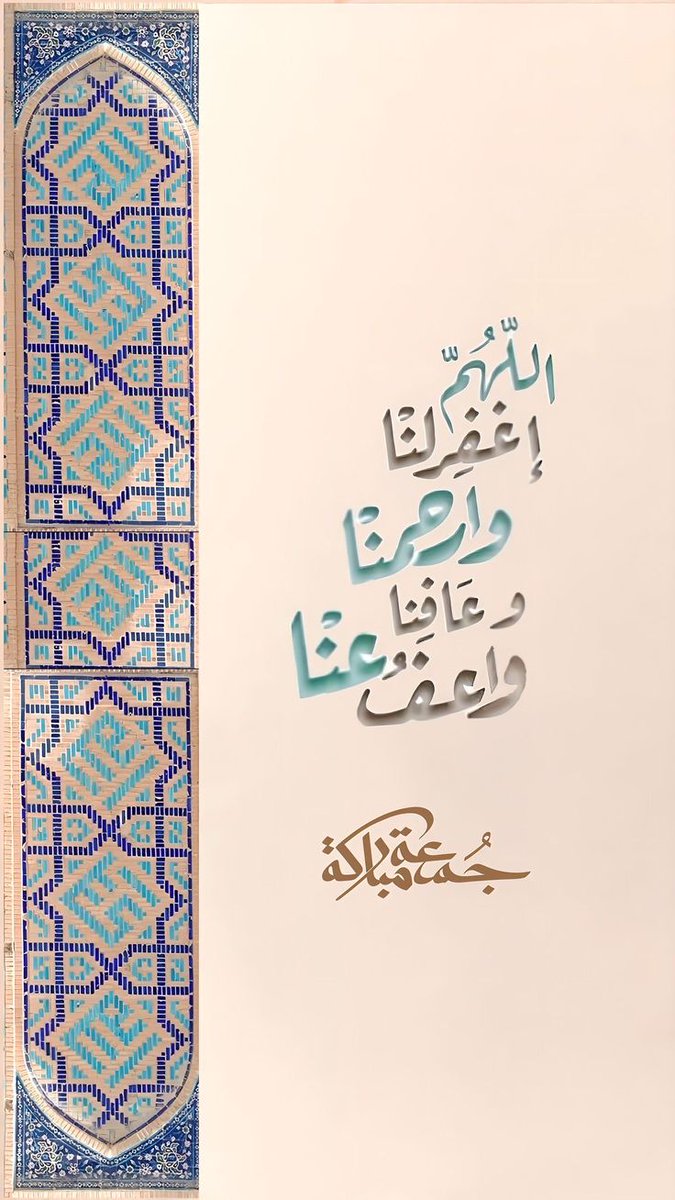 اللَّهُمَّ
إغفِرلنْا
وارحمنْا
وعَافِنا
واعفُ عنْا
جُمعة مباركة